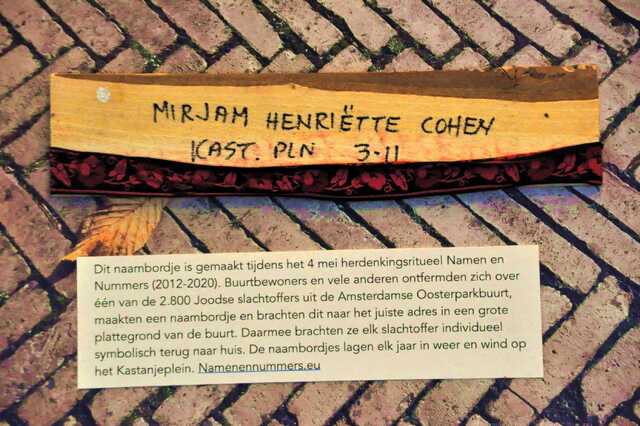 MIRJAM HENRIËTTE COHEN
KAST. PLN 3-11
Dit naambordje is gemaakt tijdens het 4 mei herdenkingsritueel Namen en
Nummers (2012-2020). Buurtbewoners en vele anderen ontfermden zich over
één van de 2.800 Joodse slachtoffers uit de Amsterdamse Oosterparkbuurt,
maakten een naambordje en brachten dit naar het juiste adres in een grote
plattegrond van de buurt. Daarmee brachten ze elk slachtoffer individueel
symbolisch terug naar huis. De naambordjes lagen elk jaar in weer en wind op
het Kastanjeplein. Namenennummers.eu